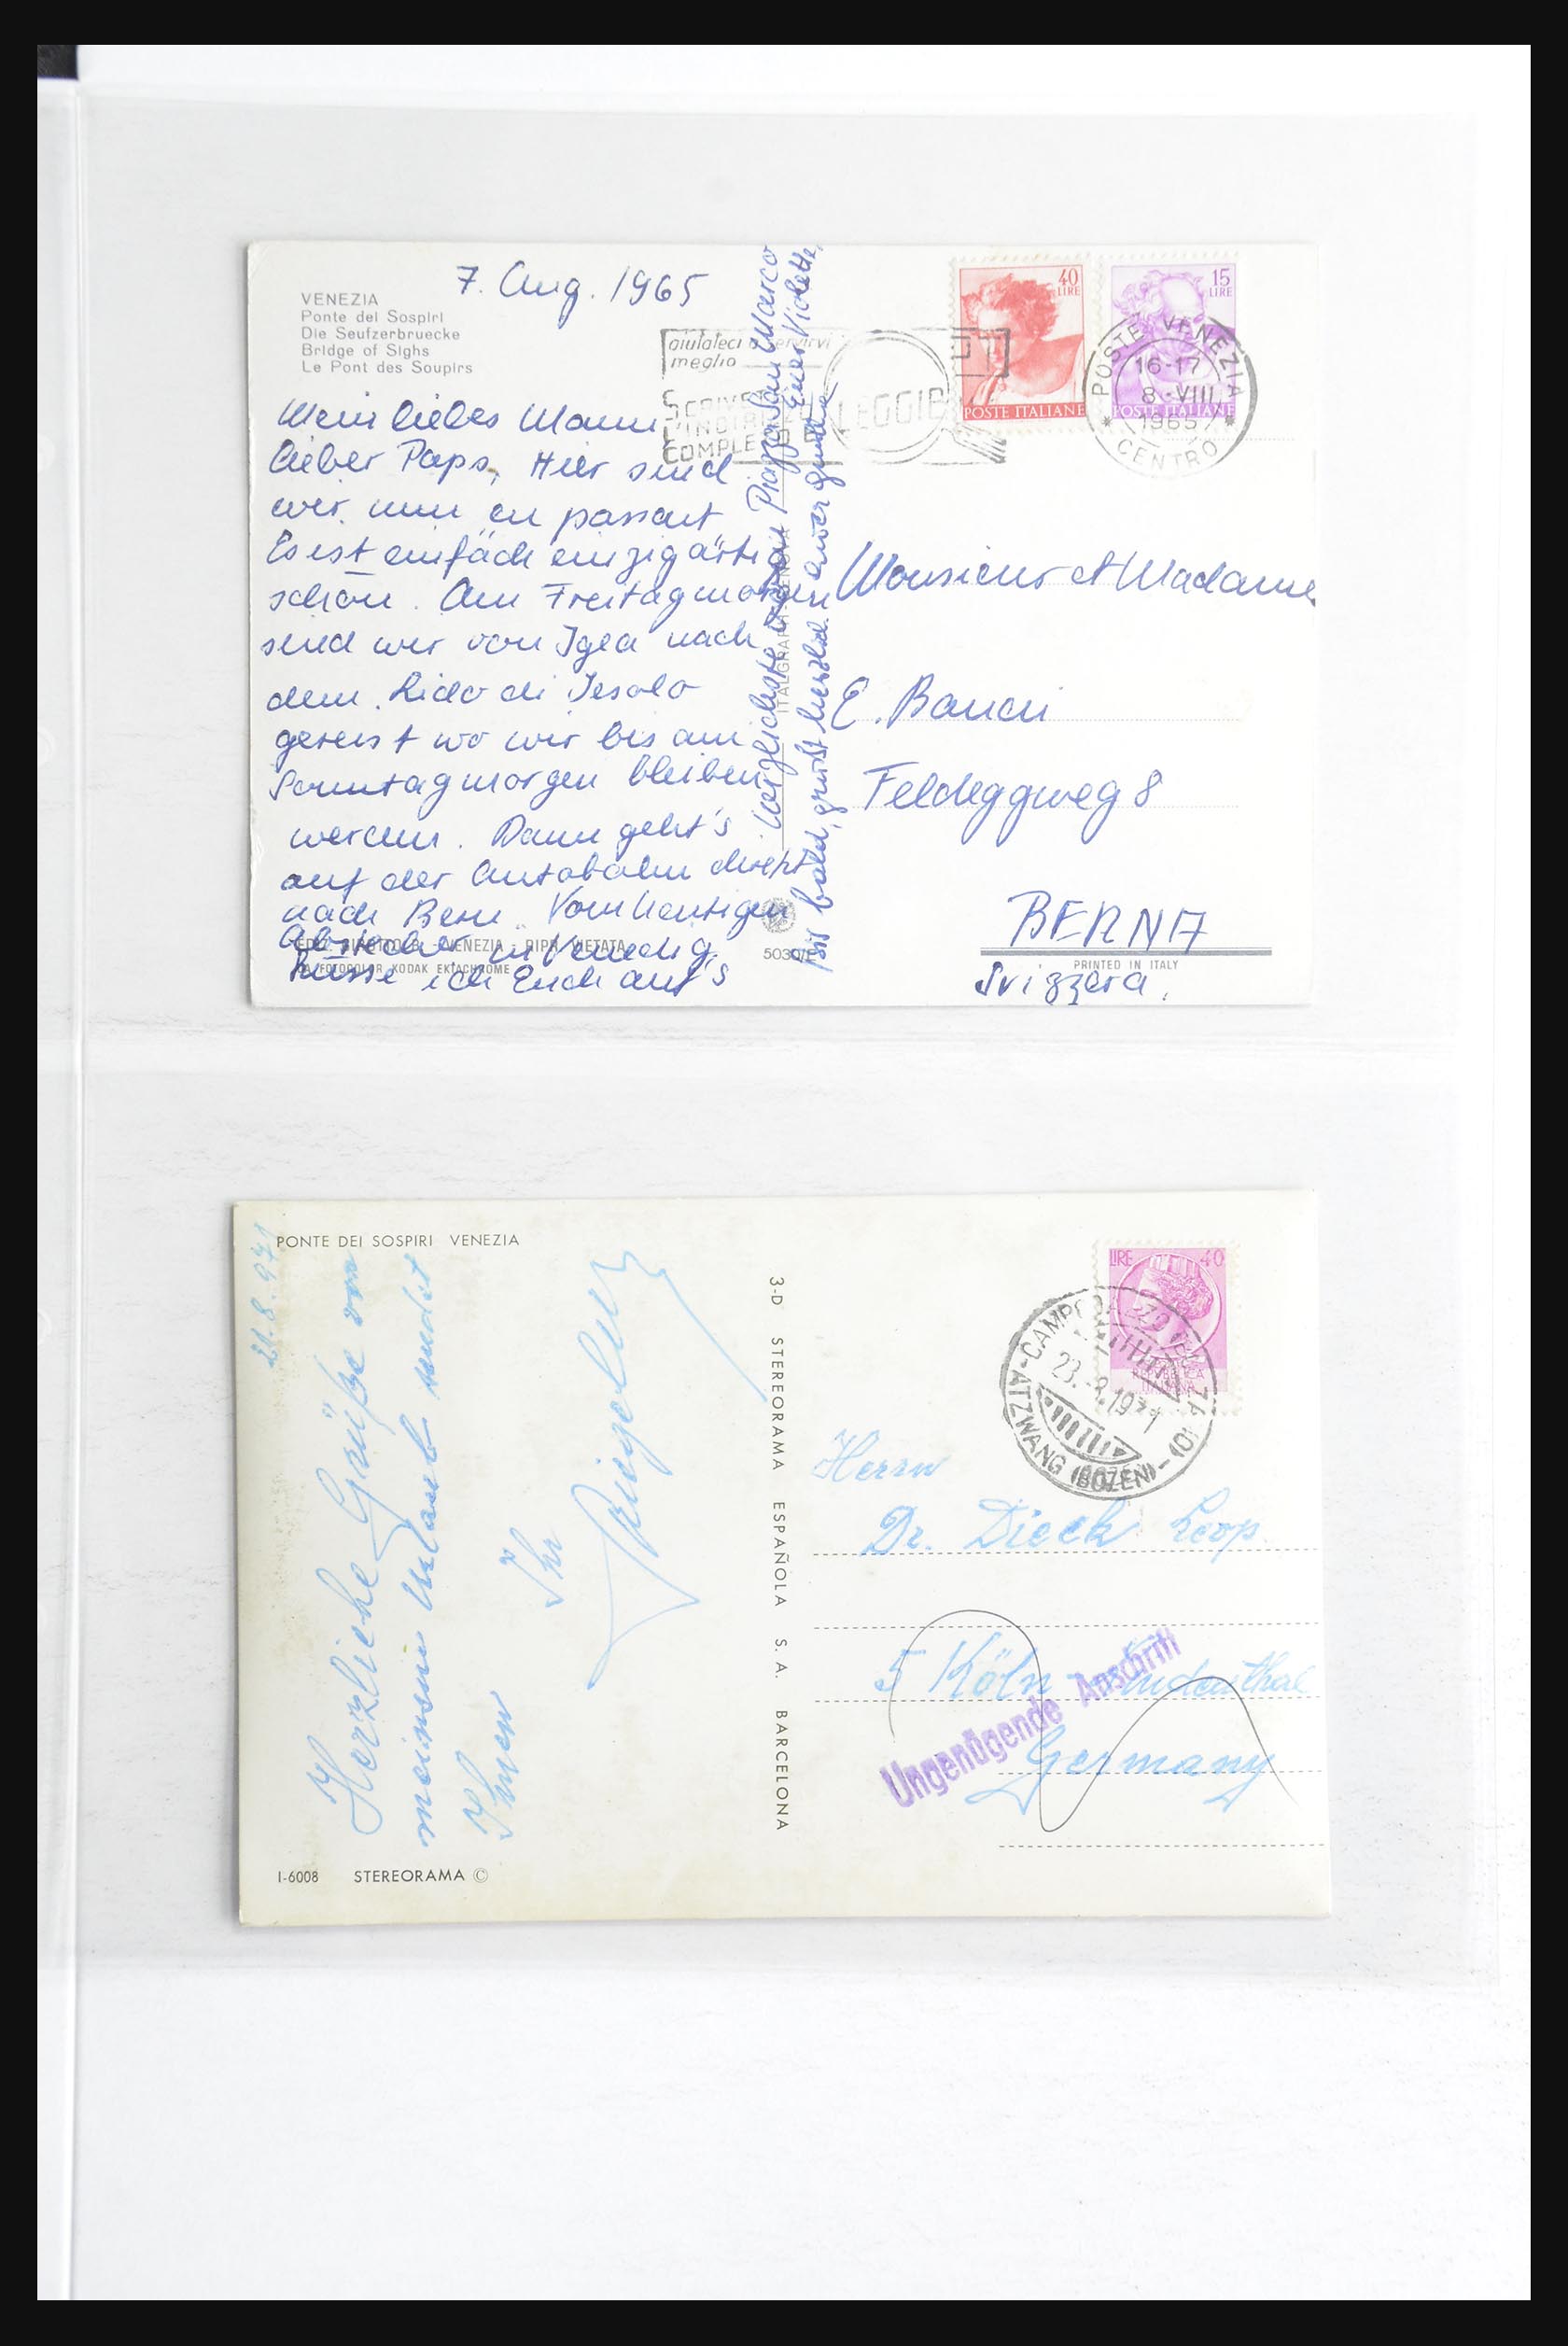 VENEZIA
Ponte dei Sospiri
Die Seufzerbruecke
Bridge of Sighs
Le Pont des Soupirs
7. Aug. 1965
Mein liebes Mami
lieber Paps, Hier sind
wir nun en passant
Es ist einfach einzigartig
schön. Am Freitagmorgen
sind wir von Igea nach
dem Lido di Jesolo
gereist wo wir bis am
Sonntagmorgen bleiben
werden. Dann geht's
auf der Autobahn direkt
nach Bern. Vom heutigen
Abstecher in Venedig
küsse ich Euch auf's
herzlichste vom Piazza San Marco
Bis bald, grüsst herzlich Eure Violette
EDIZ. - VENEZIA - RIPR. VIETATA
FOTOCOLOR KODAK EKTACHROME
5030
ITALGRAPH - GENOVA
aiutateci a servirvi
meglio
SCRIVETE
L'INDIRIZZO
COMPLETO E
LEGGIB
PT
40
LIRE
POSTE ITALIANE
15
LIRE
POSTE ITALIANE
POSTE VENEZIA
16-17
8-VIII
1965
* CENTRO *
Monsieur et Madame
E. Banci
Feldeggweg 8
BERNA
PRINTED IN ITALY
Svizzera.
PONTE DEI SOSPIRI VENEZIA
21.8.971
Herzliche Grüße von
meinem Urlaub sendet
Ihnen Ihr
I-6008 STEREORAMA ©
3-D STEREORAMA ESPAÑOLA S. A. BARCELONA
LIRE 40
23.-8.1971
ATZWANG (BOZEN)
Herrn
Dr. Dieck Leop.
5 Köln Lindenthal
Germany
Ungenügende Anschrift